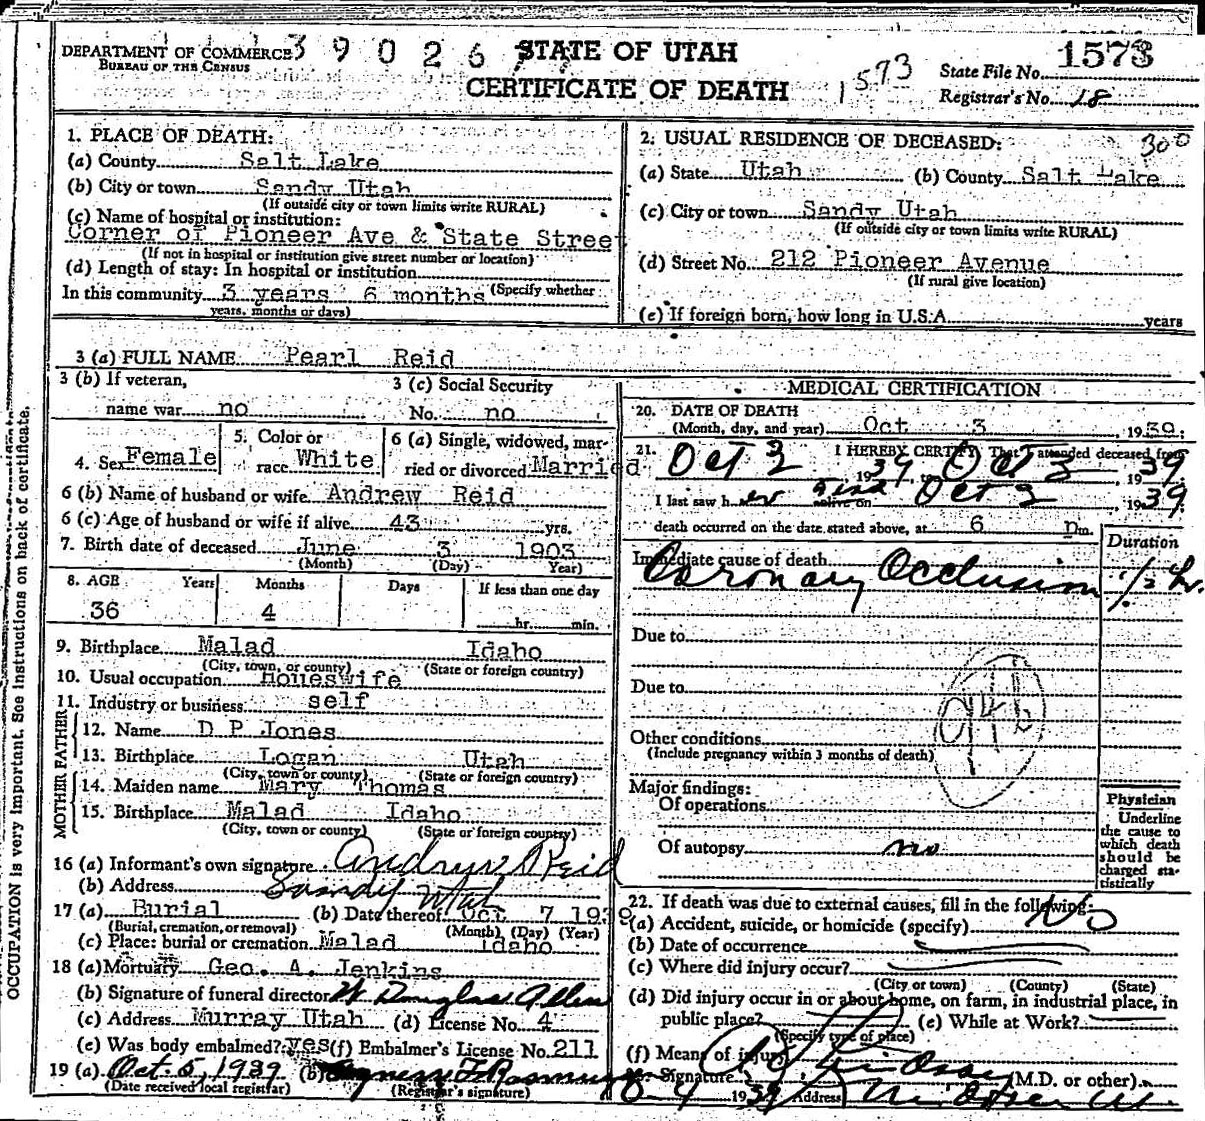 DEPARTMENT OF COMMERCE 39026 STATE OF UTAH 1573
BUREAU OF THE CENSUS CERTIFICATE OF DEATH 1573 State File No.
Registrar's No. 18
1. PLACE OF DEATH:
(a) County Salt Lake
(b) City or town Sandy Utah
(If outside city or town limits write RURAL)
(c) Name of hospital or institution:
Corner of Pioneer Ave & State Street
(If not in hospital or institution give street number or location)
(d) Length of stay: In hospital or institution
In this community 3 years 6 months (Specify whether
years, months or days)
2. USUAL RESIDENCE OF DECEASED: 300
(a) State Utah (b) County Salt Lake
(c) City or town Sandy Utah
(If outside city or town limits write RURAL)
(d) Street No. 212 Pioneer Avenue
(If rural give location)
(e) If foreign born, how long in U.S.A. years
3 (a) FULL NAME Pearl Reid
3 (b) If veteran, 3 (c) Social Security
name war no No. no
4. Sex Female 5. Color or race White 6 (a) Single, widowed, married or divorced Married
6 (b) Name of husband or wife Andrew Reid
6 (c) Age of husband or wife if alive 43 yrs.
7. Birth date of deceased June 3 1903
(Month) (Day) Year)
8. AGE Years Months Days If less than one day
36 4 hr. min.
9. Birthplace Malad Idaho
(City, town, or county) (State or foreign country)
10. Usual occupation Houeswife
11. Industry or business self
FATHER
12. Name D P Jones
13. Birthplace Logan Utah
(City, town or county) (State or foreign country)
MOTHER
14. Maiden name Mary Thomas
15. Birthplace Malad Idaho
(City, town or county) (State or foreign country)
16 (a) Informant's own signature Andrew Reid
(b) Address Sandy Utah
17 (a) Burial (b) Date thereof Oct 7 1939
(Burial, cremation, or removal) (Month) (Day) (Year)
(c) Place: burial or cremation Malad Idaho
18 (a) Mortuary Geo. A. Jenkins
(b) Signature of funeral director W. Douglas Allen
(c) Address Murray Utah (d) License No. 4
(e) Was body embalmed? yes (f) Embalmer's License No. 211
19 (a) Oct. 5, 1939 (b)
(Date received local registrar) (Registrar's signature)
MEDICAL CERTIFICATION
20. DATE OF DEATH
(Month, day, and year) Oct 3 1939.
21. I HEREBY CERTIFY That I attended deceased from
Oct 3 1939, Oct 3 1939
I last saw her alive on Oct 3 1939
death occurred on the date stated above, at 6 pm.
Duration
Immediate cause of death
Coronary Occlusion 1/2 hr.
Due to
Due to
94b
Other conditions
(Include pregnancy within 3 months of death)
Major findings:
Of operations
Of autopsy no
Physician
Underline
the cause to
which death
should be
charged sta-
tistically
22. If death was due to external causes, fill in the following:
(a) Accident, suicide, or homicide (specify) No
(b) Date of occurrence
(c) Where did injury occur?
(City or town) (County) (State)
(d) Did injury occur in or about home, on farm, in industrial place, in
public place? (e) While at Work?
(Specify type of place)
(f) Means of injury
Signature (M.D. or other)
10-4 1939 Address
OCCUPATION is very important. See instructions on back of certificate.